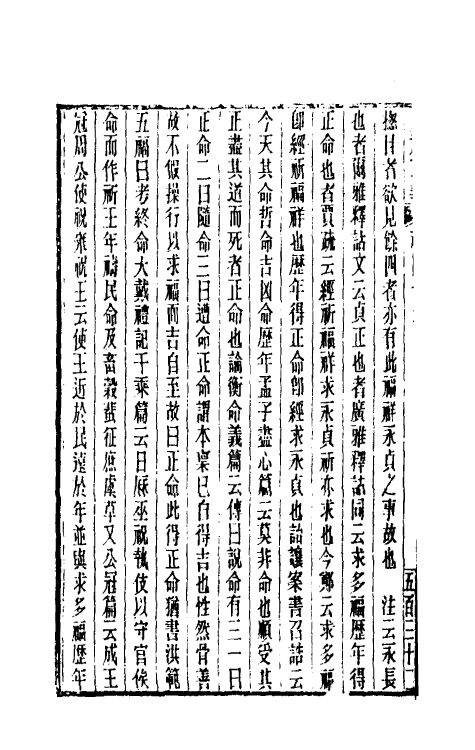 摠目者欲見餘四者亦有此福祥永貞之事故也　注云永長
也者爾雅釋詁文云貞正也者廣雅釋詁同云求多福歷年得
正命也者賈疏云經祈福祥求永貞祈亦求也今鄭云求多福
卽經祈福祥也歷年得正命卽經求永貞也詒讓案書召誥云
今天其命哲命吉凶命歷年孟子盡心篇云莫非命也順受其
正盡其道而死者正命也論衡命義篇云傳曰說命有三一曰
正命二曰隨命三曰遭命正命謂本稟已自得吉也性然骨善
故不假操行以求福而吉自至故曰正命此得正命猶書洪範
五福曰考終命大戴禮記千乘篇云日厤巫祝執伎以守官俟
命而作祈王年禱民命及畜穀蜚征庶虞草又公冠篇云成王
冠周公使祝雍祝王云使王近於民遠於年並與求多福歷年
五百三十二